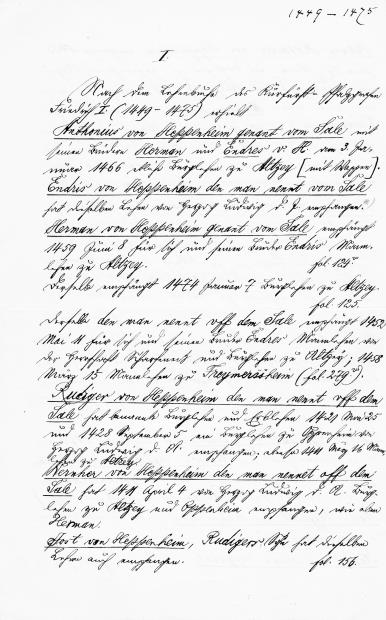 1449 – 1475
I.
Nach dem Lehenbuche des Kurfürst-Pfalzgrafen
Friedrich I. (1449–1475) erhielt
Anthonius von Heppenheim genant vom Sale mit
seinen Brüdern Herman und Endres v. H. am 3. Ja-
nuar 1466 Burglehen zu Altzey [mit Wappen].
Endris von Hepssenheim den man nennt vom Sale
hat dieselben Lehen von Herzog Ludwig d. J. empfangen.
Herman von Hepssenheim genant vom Sale empfängt
1459 Juni 8 für sich und seinen Bruder Endris Mann-
lehen zu Altzey. fol. 124.
Derselbe empfängt 1474 Januar 7 Burglehen zu Altzey.
fol. 125.
Derselbe den man nennt vff dem Sale empfängt 1452
Mai 11 für sich und seinen Bruder Endres Mannlehen von
der Herrschaft und Burglehen zu Altzey; 1458
März 15 Mannlehen zu (fol. 279).
Rudiger von Hepssenheim den man nennt vff dem
Sale hat Burglehen und 1421 Mai 25
und 1428 September 5 ein Burglehen zu von
Herzog Ludwig d. empfangen; ebenso 1411 May 16 Mann-
lehen zu Altzey.
Wernher von Hepssenheim den man nennet off dem
Sale hat 1411 April 4 von Herzog Ludwig d. Burg-
lehen zu Altzey und Oppenheim empfangen, wie oben
Herman.
von Hepssenheim, Rudigers Sohn hat dieselben
Lehen auch empfangen. fol. 156.